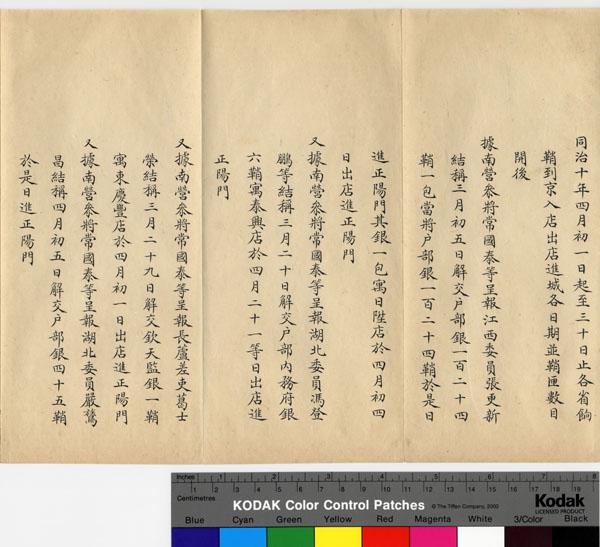 同治十年四月初一日起至三十日止各省餉
鞘到京入店出店進城各日期並鞘匣數目
開後
據南營叅將常國泰等呈報江西委員張更新
結稱三月初五日解交户部銀一百二十四
鞘一包當將户部銀一百二十四鞘於是日
進正陽門其銀一包寓日陞店於四月初四
日出店進正陽門
又據南營叅將常國泰等呈報湖北委員馮登
鵬等結稱三月二十日解交户部內務府銀
六鞘寓泰興店於四月二十一等日出店進
正陽門
又據南營叅將常國泰等呈報長蘆差吏葛士
榮結稱三月二十九日解交欽天監銀一鞘
寓東慶豐店於四月初一日出店進正陽門
又據南營叅將常國泰等呈報湖北委員嚴鷟
昌結稱四月初五日解交户部銀四十五鞘
於是日進正陽門
Inches 1 2 3 4 5 6 7 8
Centimetres 1 2 3 4 5 6 7 8 9 10 11 12 13 14 15 16 17 18 19
KODAK Color Control Patches © The Tiffen Company, 2000 Kodak
LICENSED PRODUCT
Blue Cyan Green Yellow Red Magenta White 3/Color Black